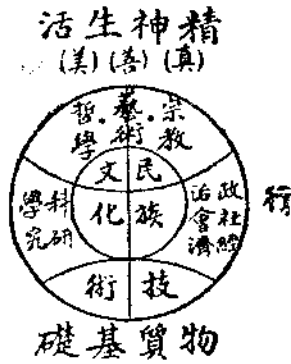 精神生活
(真)(善)(美)
宗教·藝術·哲學
民族
文化
政治
社會
經濟
科學
研究
技術
物質基礎